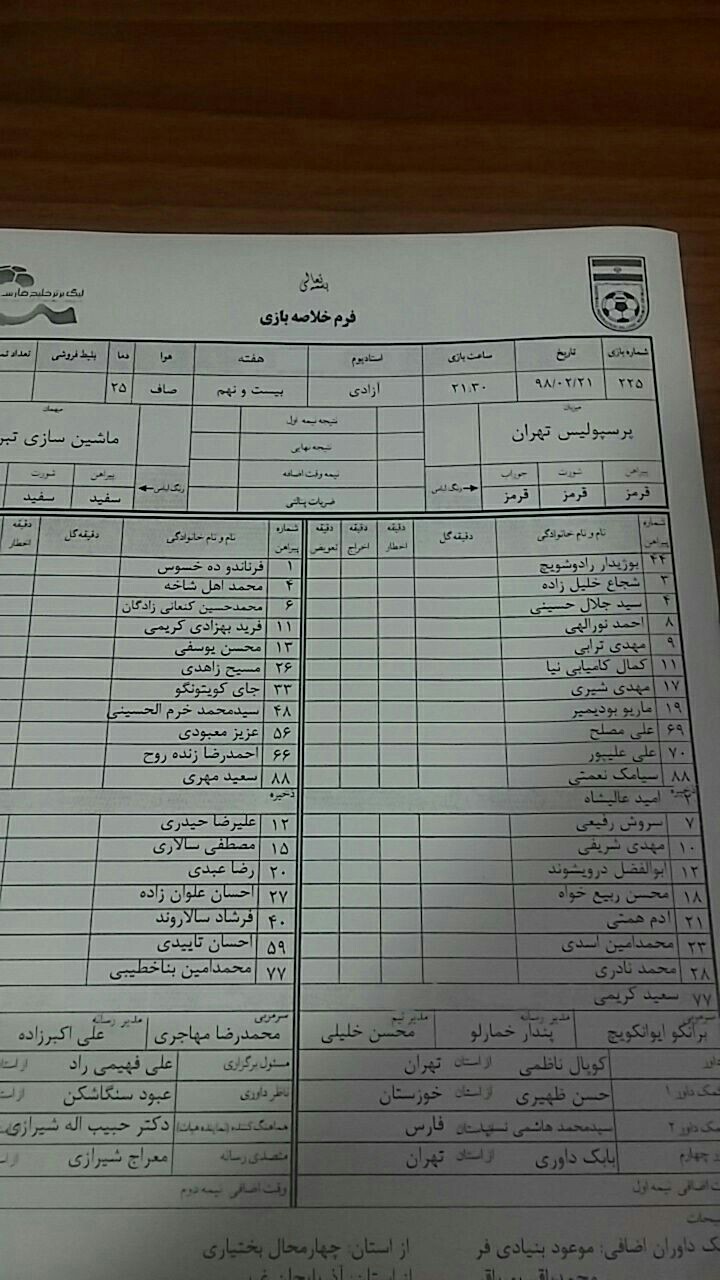 بسمه تعالی
لیگ برتر خلیج فارس
فرم خلاصه بازی
شماره بازی تاریخ ساعت بازی استادیوم هفته هوا دما بلیط فروشی تعداد
۲۲۵ ۹۸/۰۲/۲۱ ۲۱:۳۰ آزادی بیست و نهم صاف ۲۵
میزبان نتیجه نیمه اول میهمان
پرسپولیس تهران نتیجه نهایی ماشین سازی
پیراهن شورت جوراب رنگ لباس نیمه وقت اضافه رنگ لباس پیراهن شورت
قرمز قرمز قرمز ضربات پنالتی سفید سفید
شماره پیراهن نام و نام خانوادگی دقیقه گل دقیقه اخطار دقیقه اخراج دقیقه تعویض شماره پیراهن نام و نام خانوادگی دقیقه گل دقیقه اخطار
۴۴ بوژیدار رادوشویچ ۱ فرناندو ده خسوس
۳ شجاع خلیل زاده ۴ محمد اهل شاخه
۴ سید جلال حسینی ۶ محمدحسین کنعانی زادگان
۸ احمد نورالهی ۱۱ فرید بهزادی کریمی
۹ مهدی ترابی ۱۳ محسن یوسفی
۱۱ کمال کامیابی نیا ۲۶ مسیح زاهدی
۱۷ مهدی شیری ۳۳ جای کویتونگو
۱۹ ماریو بودیمیر ۴۸ سیدمحمد خرم الحسینی
۶۹ علی مصلح ۵۶ عزیز معبودی
۷۰ علی علیپور ۶۶ احمدرضا زنده روح
۸۸ سیامک نعمتی ۸۸ سعید مهری
ذخیره ذخیره
۲ امید عالیشاه
۷ سروش رفیعی ۱۲ علیرضا حیدری
۱۰ مهدی شریفی ۱۵ مصطفی سالاری
۱۲ ابوالفضل درویشوند ۲۰ رضا عبدی
۱۸ محسن ربیع خواه ۲۷ احسان علوان زاده
۲۱ ادم همتی ۴۰ فرشاد سالاروند
۲۳ محمدامین اسدی ۵۹ احسان تاییدی
۲۸ محمد نادری ۷۷ محمدامین بناخطیبی
۷۷ سعید کریمی
سرمربی مدیر رسانه مدیر تیم سرمربی مدیر رسانه
برانکو ایوانکویچ پندار خمارلو محسن خلیلی محمدرضا مهاجری علی اکبرزاده
داور کوپال ناظمی از استان تهران مسئول برگزاری علی فهیمی راد
کمک داور ۱ حسن ظهیری از استان خوزستان ناظر داوری عبود سنگاشکن
کمک داور ۲ سیدمحمد هاشمی فارس هماهنگ کننده (نماینده هیات) دکتر حبیب اله شیرازی
چهارم بابک داوری از استان تهران متصدی رسانه معراج شیرازی
وقت اضافی نیمه اول وقت اضافی نیمه دوم
داوران اضافی: موعود بنیادی فر از استان: چهارمحال بختیاری